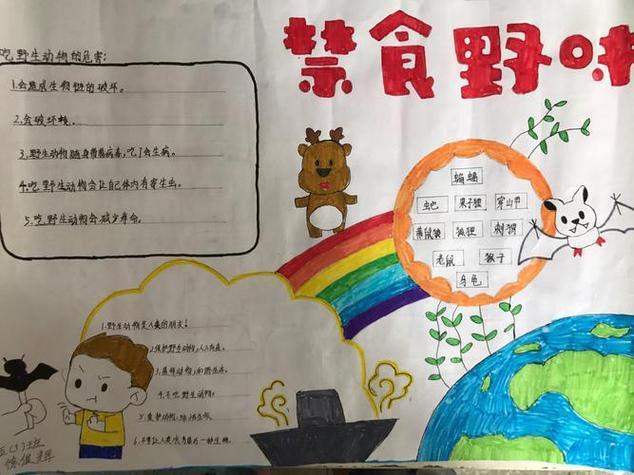 禁食野味
吃野生动物的危害:
1.会造成生物链的破坏。
2.会破坏
3.野生动物随身带着病毒,吃了会生病。
4.吃野生动物会让自己体内有寄生虫。
5.吃野生动物会减少寿命。
蝙蝠
果子狸 穿山甲
黄鼠狼 狐狸 刺猬
老鼠 猴子
1.野生动物是人类的朋友!
2.保护野生动物,人人有责。
4.不吃野生动物。
6.不要让人类
五(1)班